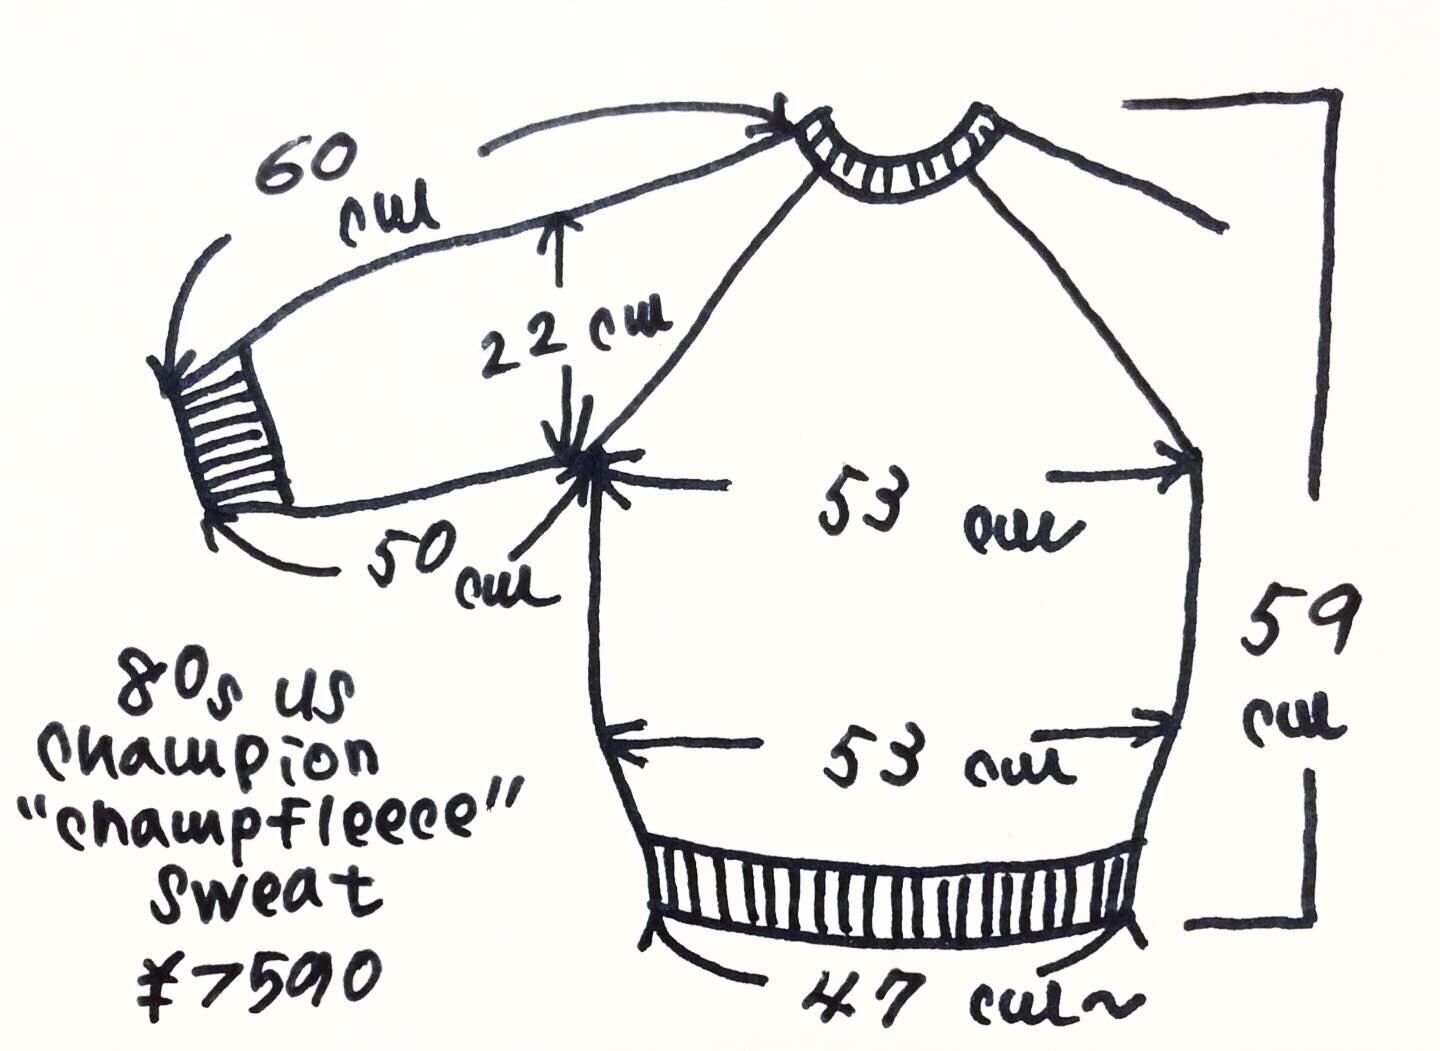 60
cm
22 cm
53 cm
50 cm
59
cm
53 cm
80s US
champion
"champfleece"
sweat
¥7590
47 cm~